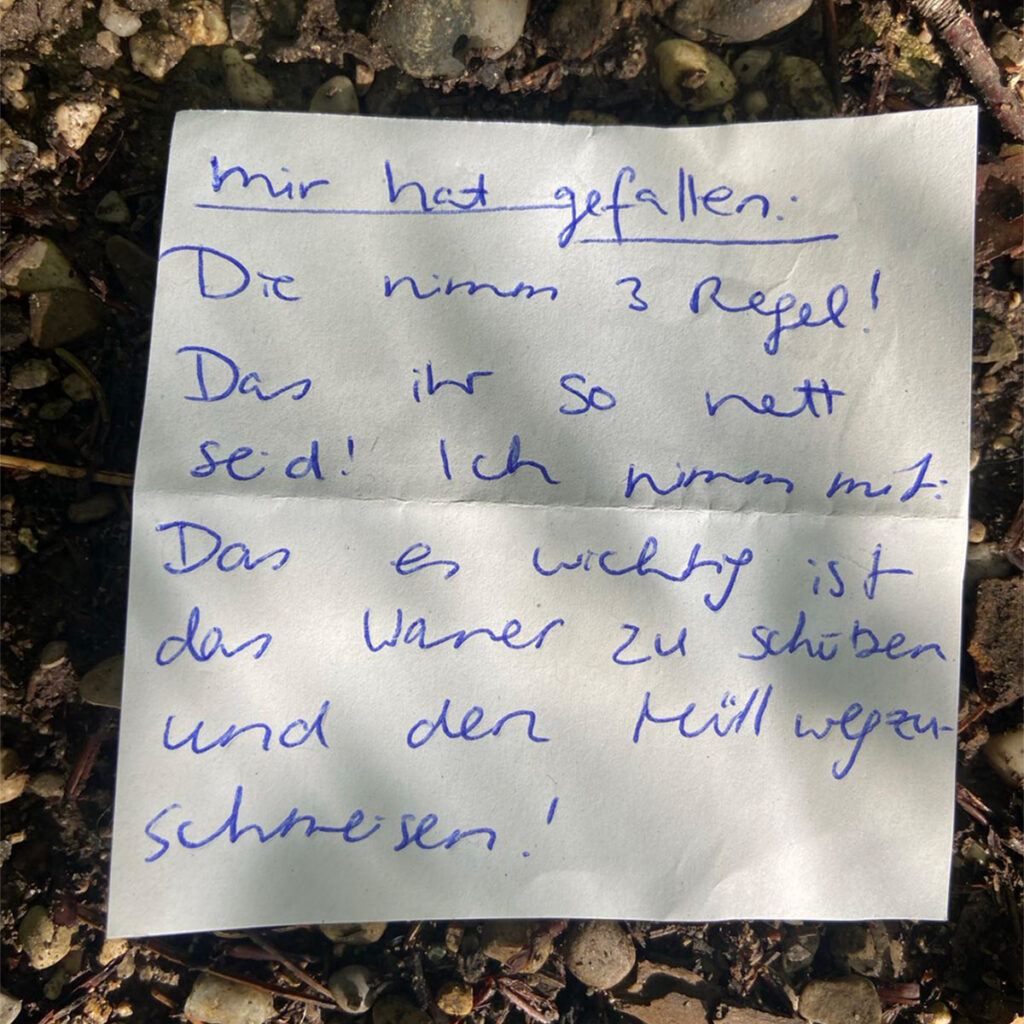 mir hat gefallen:
Die nimm 3 Regel!
Das ihr so nett
seid! Ich nimm mit:
Das es wichtig ist
das Wasser zu schüben
und den Müll wegzu-
schmeisen!